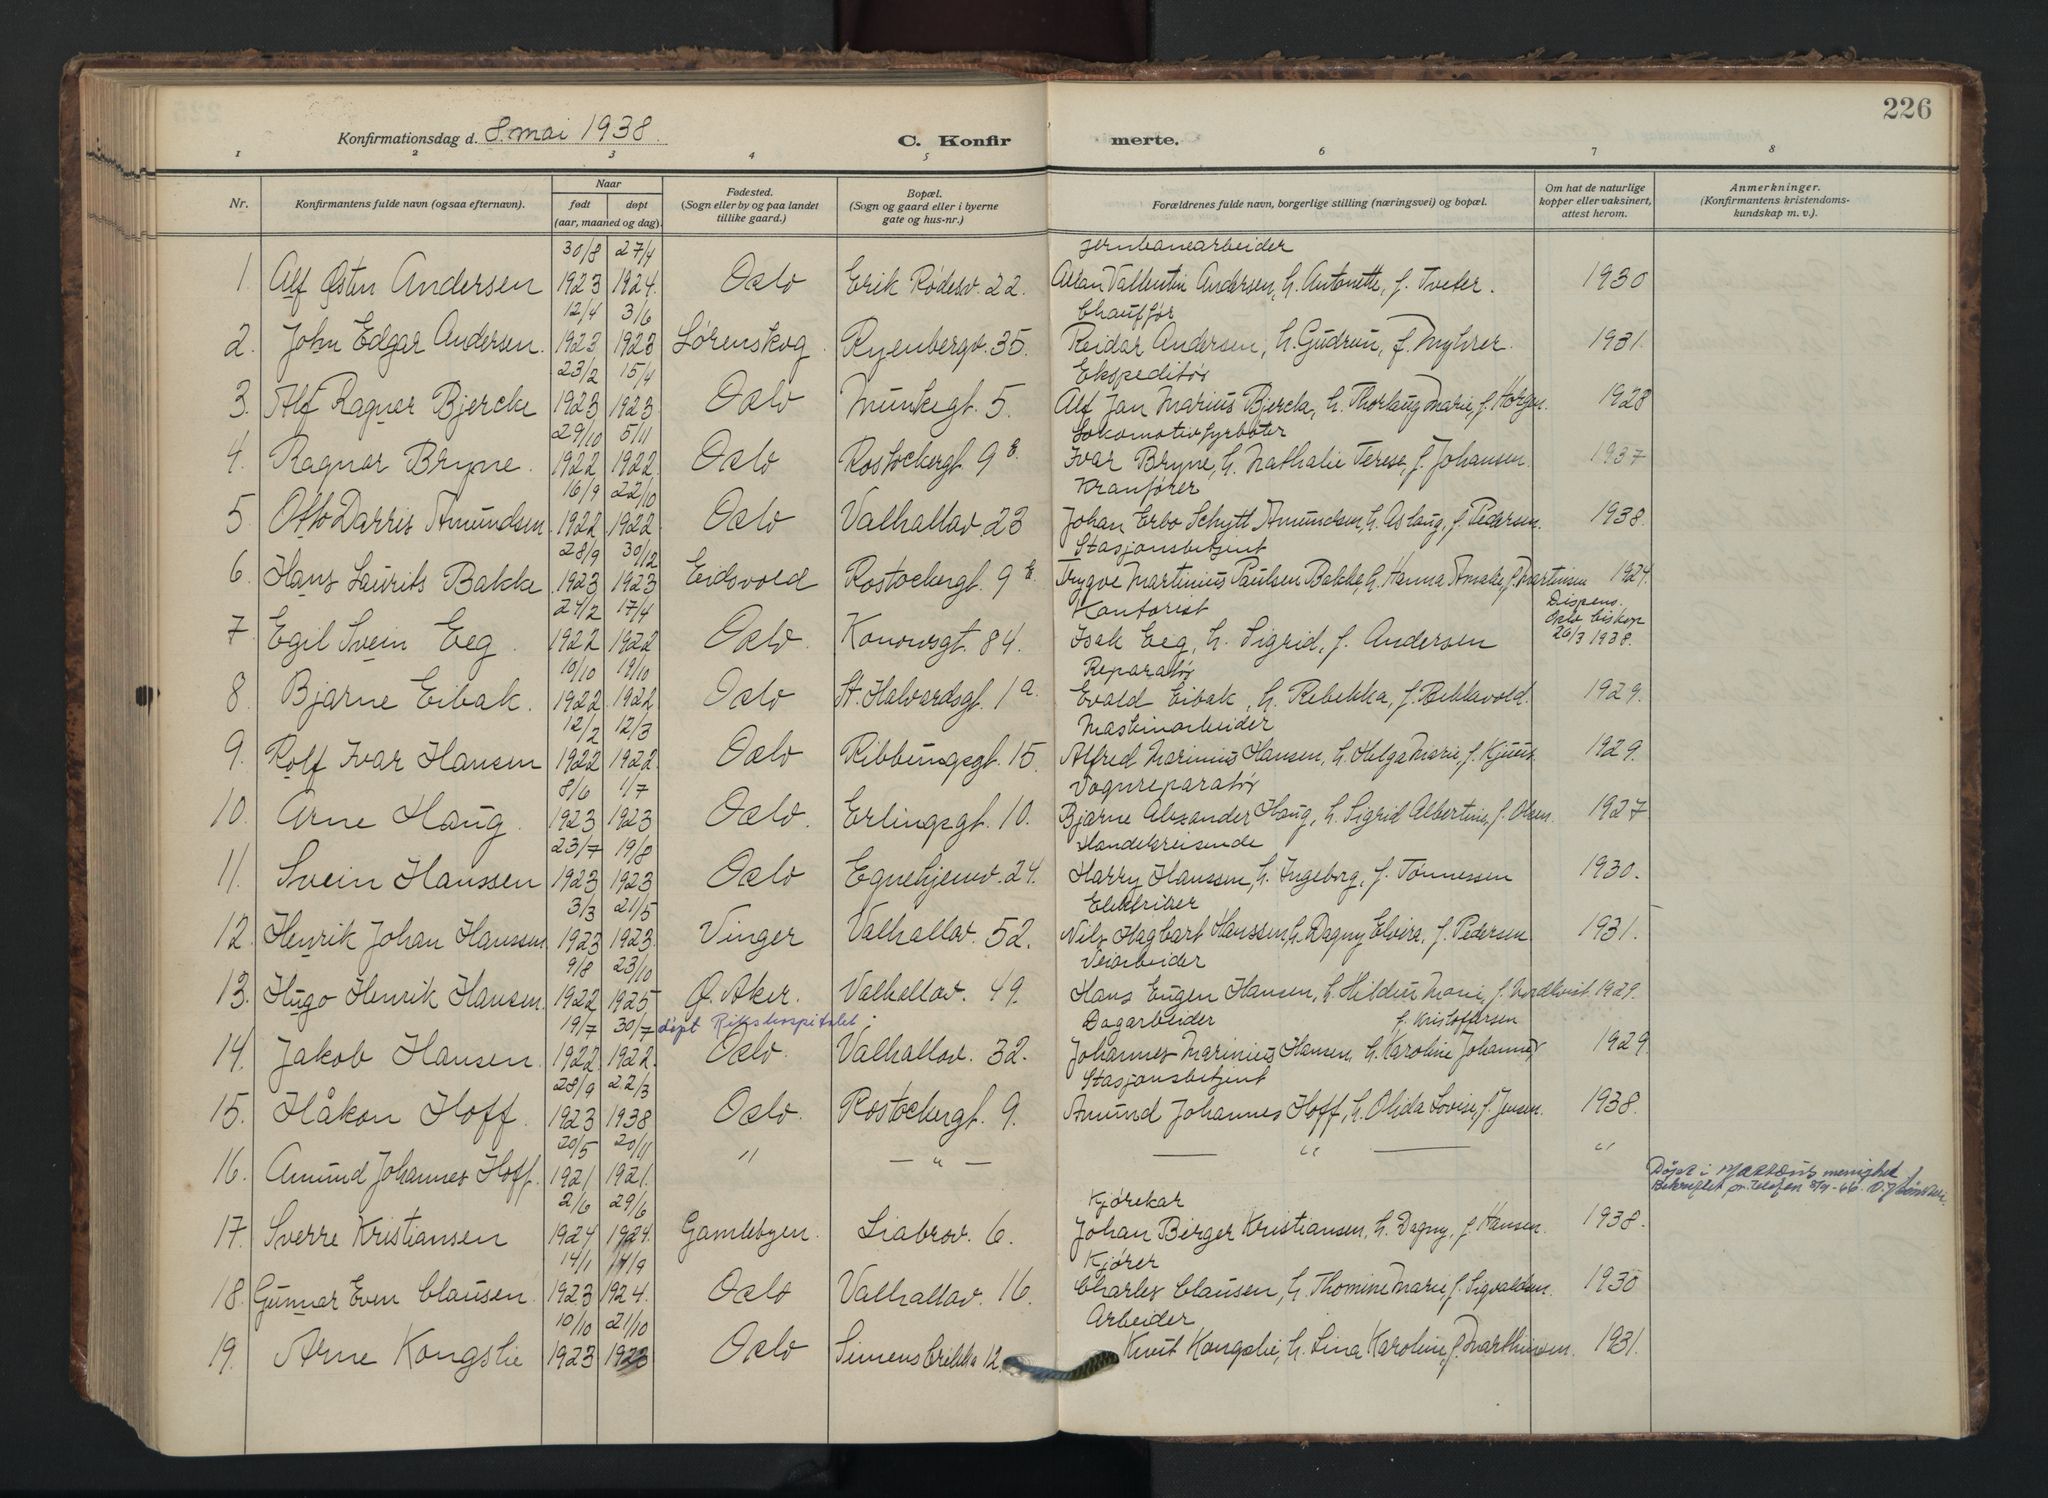 226
Konfirmationsdag d. 8. mai 1938. C. Konfirmerte.
1 2 3 4 5 6 7 8
Nr. Konfirmantens fulde navn (ogsaa efternavn). Naar født døpt (aar, maaned og dag). Fødested. (Sogn eller by og paa landet tillike gaard.) Bopæl. (Sogn og gaard eller i byerne gate og hus-nr.) Forældrenes fulde navn, borgerlige stilling (næringsvei) og bopæl. Om hat de naturlige kopper eller vaksinert, attest herom. Anmerkninger. (Konfirmantens kristendomskundskap m. v.).
30/8 27/4 Jernbanearbeider
1. Alf Østen Andersen 1923 1924. Oslo Erik Rødesv. 22. Vallentin Andersen, h. Antonette, f. Tveter. 1930
12/4 3/6 Chauffør
2. John Edgar Andersen. 1923 1923 Lørenskog Ryenbergv. 35. Reidar Andersen, h. Gudrun, f. Myhrer. 1931.
23/2 15/4 Ekspeditør
3. Alf Ragnar Bjercke 1923 1923. Oslo Munkegt. 5. Alf Jan Marius Bjercke, h. Thorlaug Marie, f. Horgen. 1928
29/10 5/11 Lokomotivfyrbøter
4. Ragnar Bryne. 1922 1922. Oslo Rostockergt. 9 E. Ivar Bryne, h. Nathalie Terese, f. Johansen. 1937
16/9 22/10 Kranfører
5. Otto Amundsen 1922 1922. Oslo Valhallav. 23 Johan Schytt Amundsen, h. Aslaug, f. Pedersen. 1938.
28/9 30/12 Stasjonsbetjent
6. Hans Laurits Bakke 1923 1923 Eidsvold Rostockergt. 9 E. Trygve Martinius Paulsen Bakke, h. Hanna Amalie, f. Martinsen 1924.
24/2 17/4 Kontorist Dispens. Oslo biskop
7. Egil Svein Eeg. 1922 1922 Oslo. Konowsgt. 84. Isak Eeg, h. Sigrid, f. Andersen 26/3 1938.
10/10 19/10 Reparatør
8. Bjarne Eibak. 1922 1922. Oslo St. Halvardsgt. 1 a. Evald Eibak, h. Rebekka, f. Bekkevold. 1929.
12/2 12/3 Maskinarbeider
9. Rolf Ivar Hansen 1922 1922. Oslo Ribbungsgt. 15. Alfred Marinius Hansen, h. Helga Marie, f. 1929.
8/6 1/7 Vognreparatør
10. Arne Haug. 1923 1923. Oslo. Erlingsgt. 10. Bjarne Alexander Haug, h. Sigrid Albertine, f. Olsen. 1927
23/7 19/8 Handelsreisende
11. Svein Hanssen 1923 1923 Oslo Egnehjemv. 24. Harry Hanssen, h. Ingeborg, f. Tønnessen 1930.
3/3 21/5 Elektriker
12. Henrik Johan Hanssen 1923 1923. Vinger Valhallav. 52. Nils Hagbart Hanssen, h. Dagny Elvira, f. Pedersen 1931.
9/8 23/10 Veiarbeider
13. Hugo Henrik Hansen. 1922 1925 Ø. Aker. Valhallav. 49. Hans Eugen Hansen, h. Hildur Marie, f. Nordkvist. 1929.
19/7 30/7 døpt Rikshospitalet. Dagarbeider f. Kristoffersen
14. Jakob Hansen. 1922 1922. Oslo. Valhallav. 32. Johannes Marinius Hansen, h. Karoline Johanne, 1929
28/9 22/3 Stasjonsbetjent
15. Håkon Hoff. 1923 1938 Oslo. Rostockergt. 9. Amund Johannes Hoff, h. Olida Lovise, f. Jensen. 1938.
20/5 20/11
16. Amund Johannes Hoff. 1921 1921. " — " — — " — " Døpt i Matteus menighet Bekreftet pr. telefon
2/6 29/6 Kjørekar
17. Sverre Kristiansen 1924 1924. Gamlebyen. Liabrov. 6. Johan Birger Kristiansen, h. Dagny, f. Hansen. 1938.
14/1 14/9 Kjører
18. Gunnar Even Clausen. 1923 1924. Oslo Valhallav. 16. Charles Clausen, h. Thomine Marie, f. Sigvaldsen. 1930
10/10 21/10 Arbeider
19. Arne Kongslie 1923 1923 Oslo Simensbrekka 12. Knut Kongslie, h. Lina Karoline, f. Marthinsen. 1931.